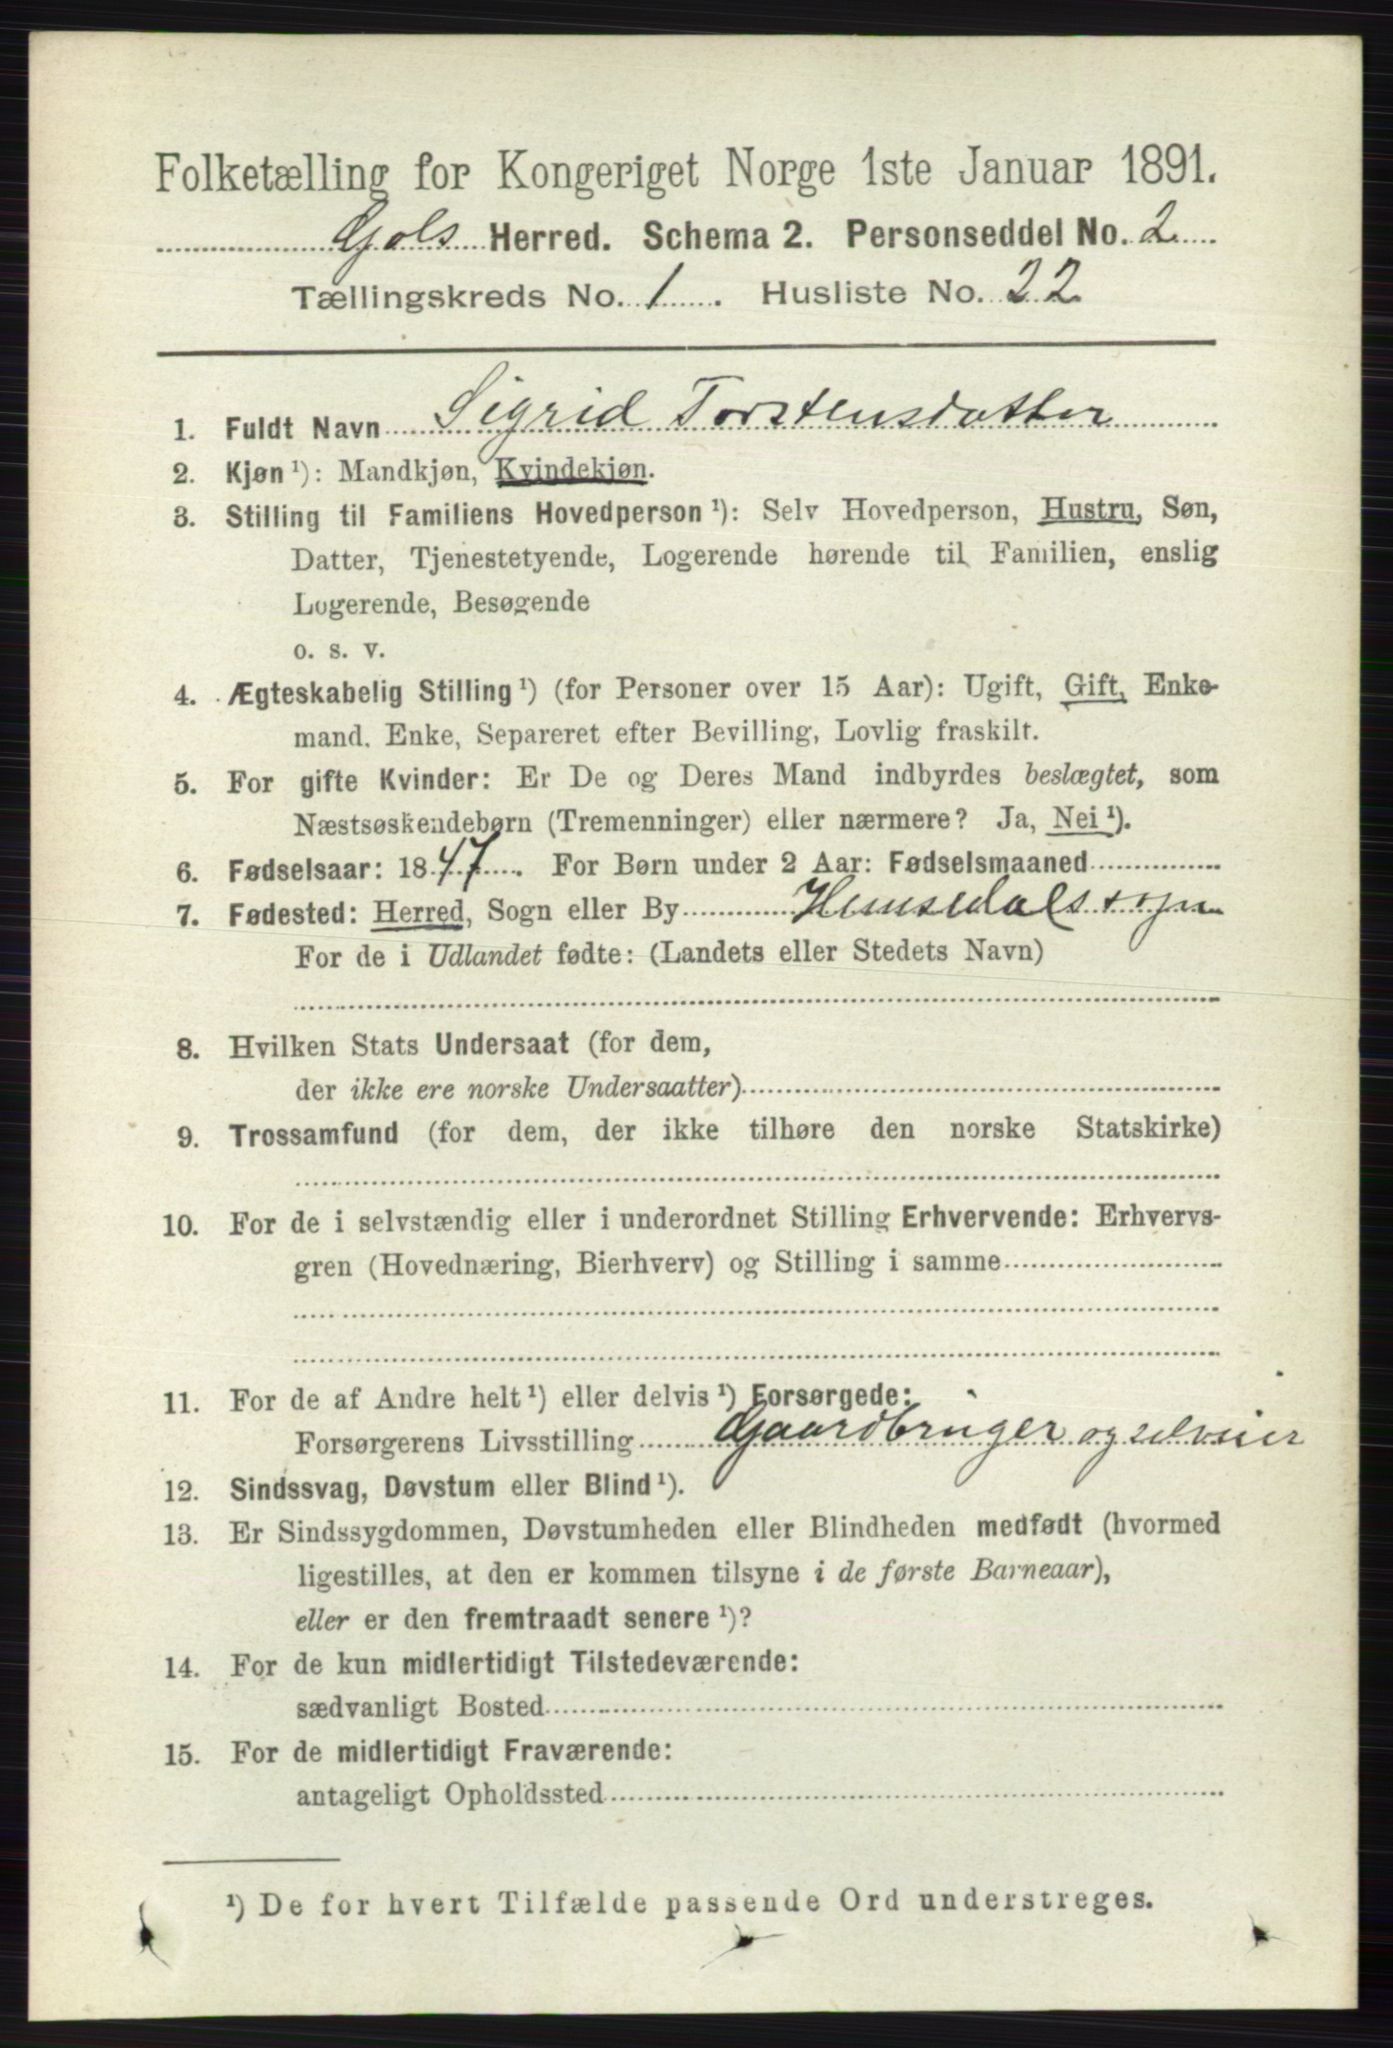 Folketælling for Kongeriget Norge 1ste Januar 1891.
Gols Herred. Schema 2. Personseddel No. 2
Tællingskreds No. 1. Husliste No. 22
1. Fuldt Navn Sigrid Torstensdatter
2. Kjøn ¹): Mandkjøn, Kvindekjøn.
3. Stilling til Familiens Hovedperson ¹): Selv Hovedperson, Hustru, Søn,
Datter, Tjenestetyende, Logerende hørende til Familien, enslig
Logerende, Besøgende
o. s. v.
4. Ægteskabelig Stilling ¹) (for Personer over 15 Aar): Ugift, Gift, Enke-
mand, Enke, Separeret efter Bevilling, Lovlig fraskilt.
5. For gifte Kvinder: Er De og Deres Mand indbyrdes beslægtet, som
Næstsøskendebørn (Tremenninger) eller nærmere? Ja, Nei ¹).
6. Fødselsaar: 1847. For Børn under 2 Aar: Fødselsmaaned
7. Fødested: Herred, Sogn eller By Hemsedals sogn
For de i Udlandet fødte: (Landets eller Stedets Navn)
8. Hvilken Stats Undersaat (for dem,
der ikke ere norske Undersaatter)
9. Trossamfund (for dem, der ikke tilhøre den norske Statskirke)
10. For de i selvstændig eller i underordnet Stilling Erhvervende: Erhvervs-
gren (Hovednæring, Bierhverv) og Stilling i samme
11. For de af Andre helt ¹) eller delvis ¹) Forsørgede:
Forsørgerens Livsstilling Gaardbruger og selveier
12. Sindssvag, Døvstum eller Blind ¹).
13. Er Sindssygdommen, Døvstumheden eller Blindheden medfødt (hvormed
ligestilles, at den er kommen tilsyne i de første Barneaar),
eller er den fremtraadt senere ¹)?
14. For de kun midlertidigt Tilstedeværende:
sædvanligt Bosted
15. For de midlertidigt Fraværende:
antageligt Opholdssted
¹) De for hvert Tilfælde passende Ord understreges.